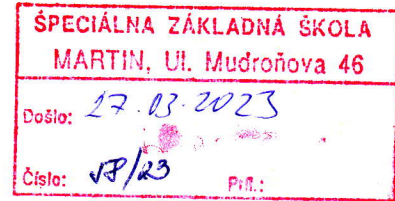 ŠPECIÁLNA ZÁKLADNÁ ŠKOLA
MARTIN, Ul. Mudroňova 46
Došlo: 27.03.2023
Číslo: /23 Príl.: